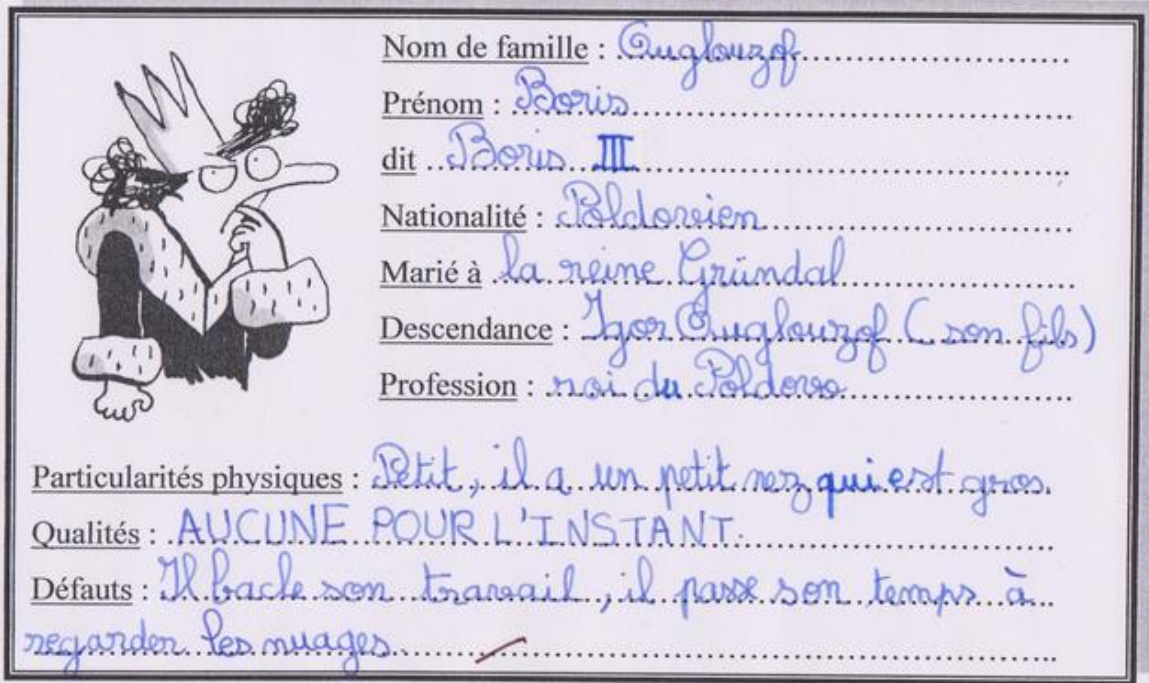 Nom de famille : Ouglouzof
Prénom : Boris
dit Boris III
Nationalité : Poldovien
Marié à la reine Gründal
Descendance : Igor Ouglouzof (son fils)
Profession : roi du Poldovo
Particularités physiques : Petit, il a un petit nez qui est gros.
Qualités : AUCUNE POUR L'INSTANT.
Défauts : Il bacle son travail, il passe son temps à
regarder les nuages